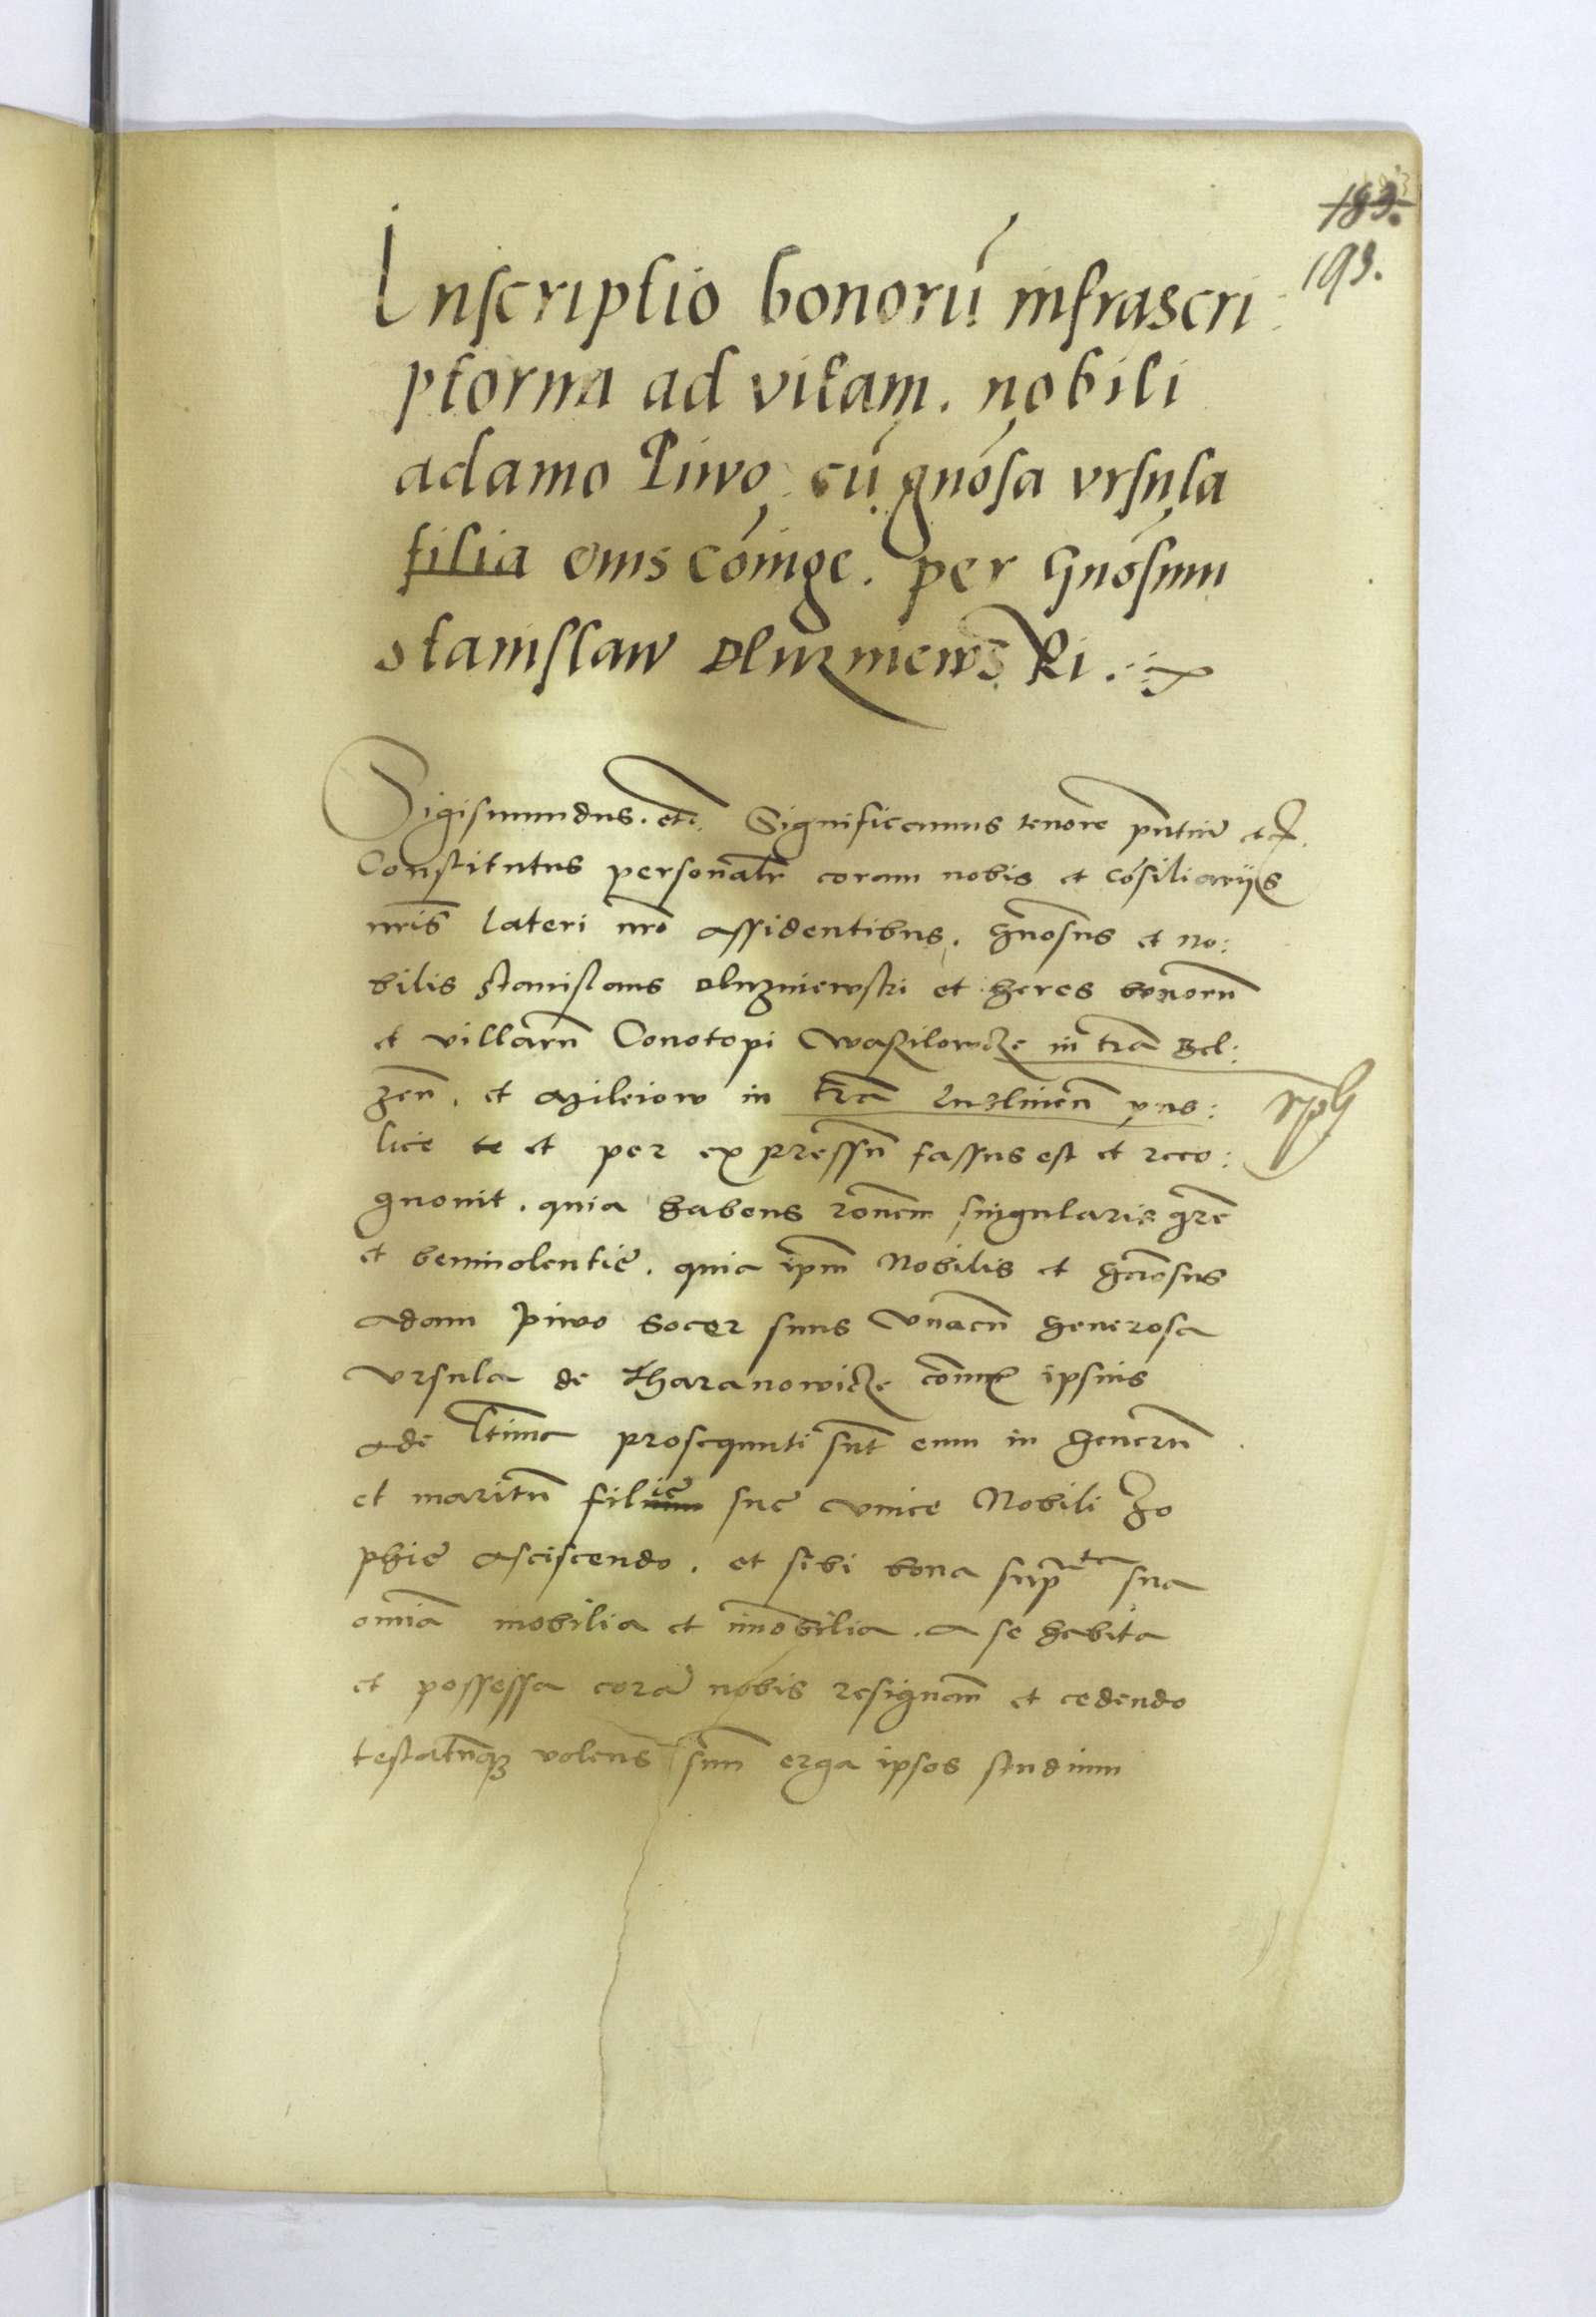 183.
193.
Inscriptio bonorú infrascri
ptorum ad vitam. nobili
adamo Piwo cú gnósa vrsula
filia eius cóiuge. per Gnósum
stanislaw Dluzniewski.
Sigismundus. etc. Significamus tenore pntiu etc.
Constitutus personalr coram nobis et cósiliarijs
nris lateri nro assidentibus. gnosus et no:
bilis stanislaus Dluzniewski et heres bonoru
et villaru Conotopi Waszilowcze in tra Bel:
zen. et in tra pub:
lice te et per expressu fassus est et reco:
gnouit. quia habens ronem singularis gre
et beniuolentie. quia ipm Nobilis et gnosus
adam Piwo socer suus vnacu generosa
vrsula de Tharanowicze coniux ipsius
prosequuti sunt eum in generu
et maritu filie sue vnice Nobili Zo
phie asciscendo. et sibi bona supta sua
omia mobilia et imobilia. a se habita
et possessa cora nobis resignan et cedendo
testatuqz volens suu erga ipsos studium